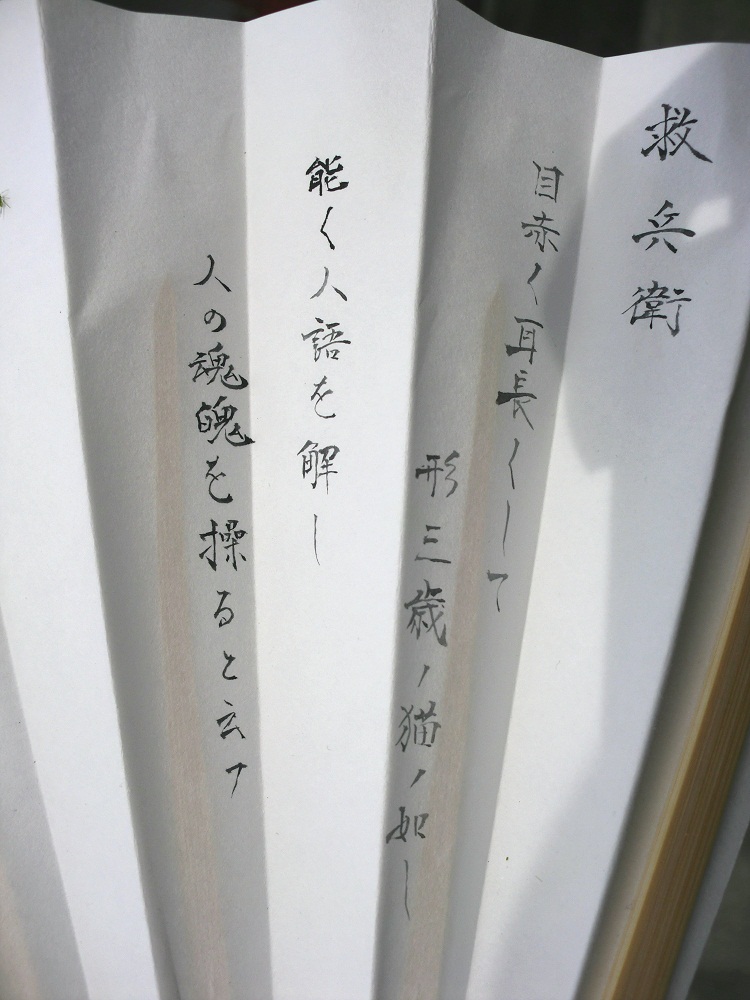 救兵衛
目赤く耳長くして
形三歳ノ猫ノ如し
能く人語を解し
人の魂魄を操ると云フ